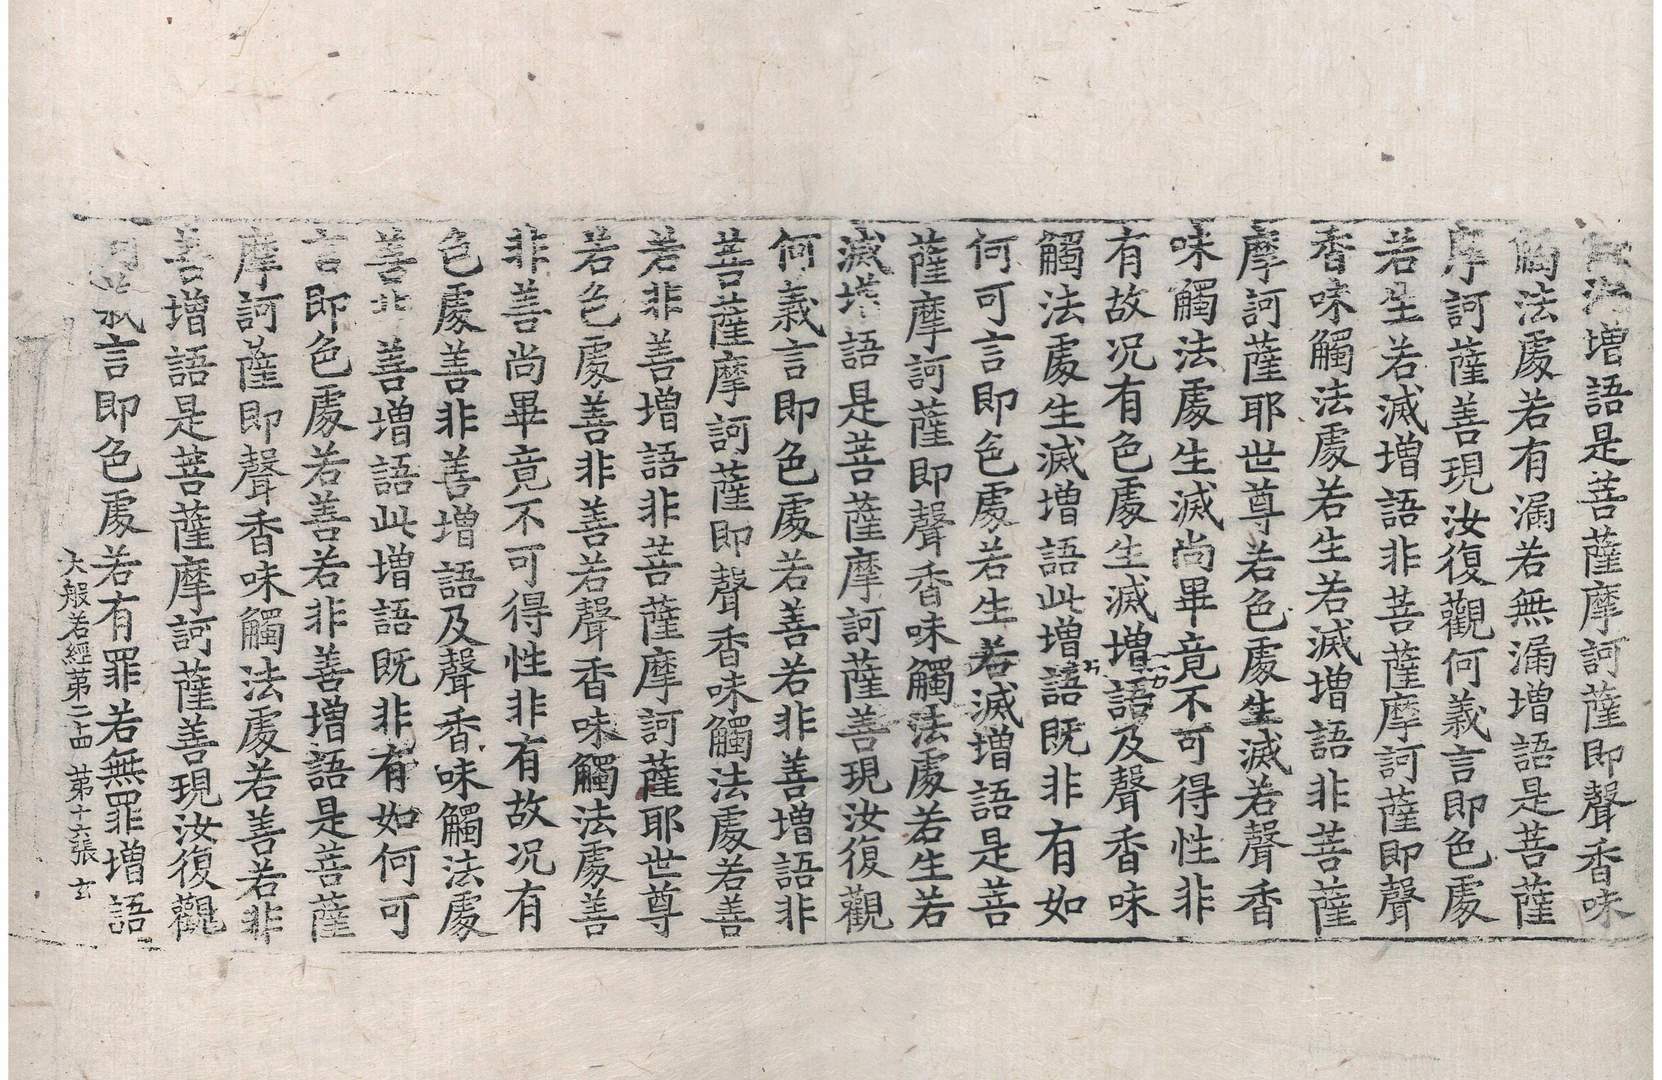 漏增語是菩薩摩訶薩即聲香味
觸法處若有漏若無漏增語是菩薩
摩訶薩善現汝復觀何義言即色處
若生若滅增語非菩薩摩訶薩即聲
香味觸法處若生若滅增語非菩薩
摩訶薩耶世尊若色處生滅若聲香
味觸法處生滅尚畢竟不可得性非
有故况有色處生滅增語及聲香味
觸法處生滅增語此增語既非有如
何可言即色處若生若滅增語是菩
薩摩訶薩即聲香味觸法處若生若
滅增語是菩薩摩訶薩善現汝復觀
何義言即色處若善若非善增語非
菩薩摩訶薩即聲香味觸法處若善
若非善增語非菩薩摩訶薩耶世尊
若色處善非善若聲香味觸法處善
非善尚畢竟不可得性非有故况有
色處善非善增語及聲香味觸法處
善非善增語此增語既非有如何可
言即色處若善若非善增語是菩薩
摩訶薩即聲香味觸法處若善若非
善增語是菩薩摩訶薩善現汝復觀
言即色處若有罪若無罪增語
大般若經第二十四 第十六張 玄